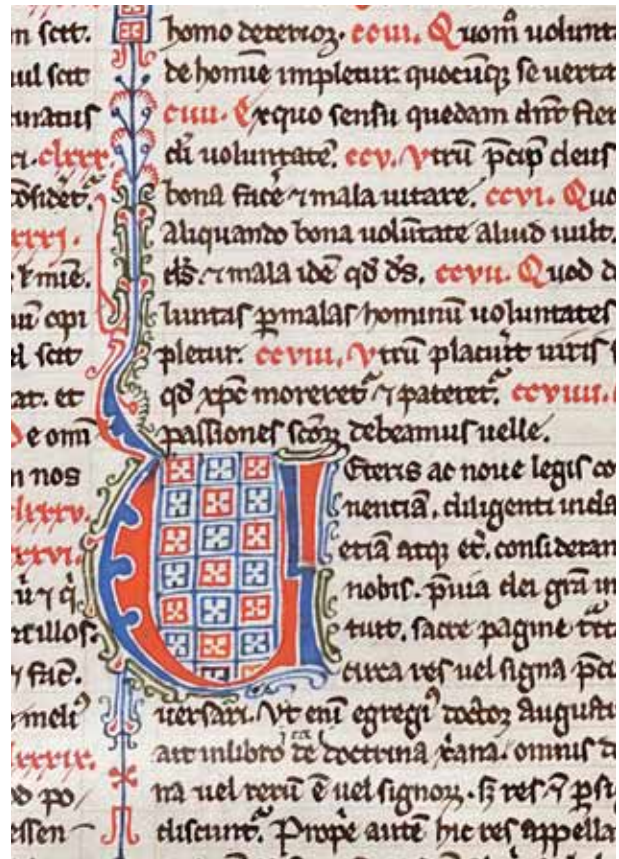 m scit.
uul scit
curatus
ci. clxxx.
cōsidēt.
xxxi.
t mie.
uū opi
el scit
at. et
de omī
n nos
clxxxv.
xxxvi.
ūr ⁊ q̇
illos.
⁊ fuc̄.
meliꝰ
xxxix.
ꝺ po
essen
homo deterioꝝ. cciii. Quom̄ volunt
de homīe impletur quocūqꝫ se verta
ciiii. Exquo sensu quedam dn̄r fier
di voluntatē. ccv. Vtrū p̄cip̄ deus
bona facē ⁊ mala uitare. ccvi. Quo
aliquando bona volūtate aliud uult.
els̄. ⁊ mala idē qd̄ ds̄. ccvii. Quod d
luntas ꝑmalas hominū voluntates
pletur. ccviii. Vtrū placuīt uiris s
qd̄ xp̄c moreret᷑ ⁊ pateret᷑. ccviiii.
passiones scōꝝ debeamus uelle.
Ueteris ac noue legis co
nentiā. diligenti inda
etiā atqꝫ et̄. consideran
nobis. p̄uia dei grā in
tuit. sacre pagine tc̄t
circa res uel signa p̄ci
uersari. Vt enī egregiꝰ doctoꝝ Augusti
ait inlibro de doctrina xāna. omnis d
na uel rerū ē uel signoꝝ. sꝫ res ⁊ ꝑ si
discunt᷑. Propē autē hic res appella